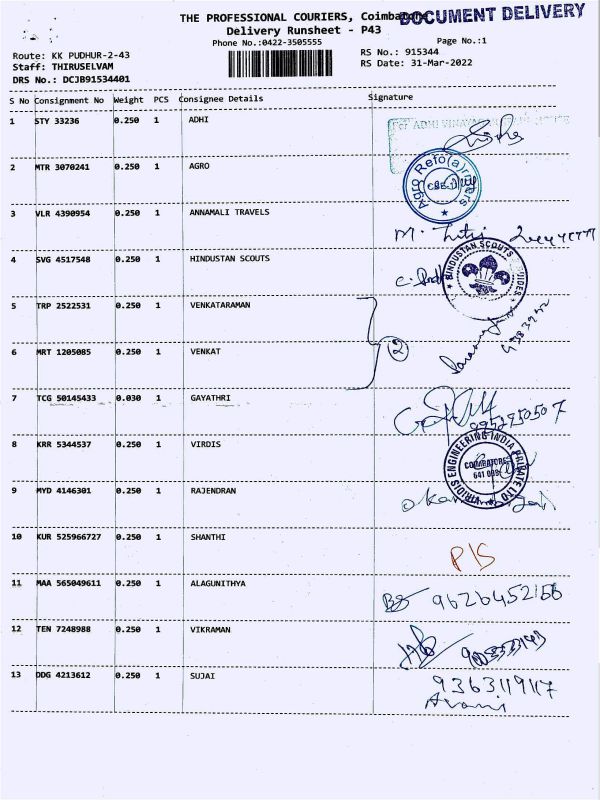 THE PROFESSIONAL COURIERS, Coimbatore
DOCUMENT DELIVERY
Delivery Runsheet - P43
Phone No.:0422-3505555
Page No.:1
Route: KK PUDHUR-2-43
RS No.: 915344
Staff: THIRUSELVAM
RS Date: 31-Mar-2022
DRS No.: DCJB91534401
S No Consignment No Weight PCS Consignee Details Signature
1 STY 33236 0.250 1 ADHI
For ADHI VINAYAGA
2 MTR 3070241 0.250 1 AGRO
Agro Refo(a)rmers
CBE-11
3 VLR 4390954 0.250 1 ANNAMALI TRAVELS
M.
4 SVG 4517548 0.250 1 HINDUSTAN SCOUTS
HINDUSTAN SCOUTS GUIDES
5 TRP 2522531 0.250 1 VENKATARAMAN
6 MRT 1205085 0.250 1 VENKAT
2
7 TCG 50145433 0.030 1 GAYATHRI
8 KRR 5344537 0.250 1 VIRDIS
VIRIDIS ENGINEERING INDIA PRIVATE LTD
COIMBATORE
9 MYD 4146301 0.250 1 RAJENDRAN
10 KUR 525966727 0.250 1 SHANTHI
P/S
11 MAA 565049611 0.250 1 ALAGUNITHYA
9626452156
12 TEN 7248988 0.250 1 VIKRAMAN
13 DDG 4213612 0.250 1 SUJAI
9363119117